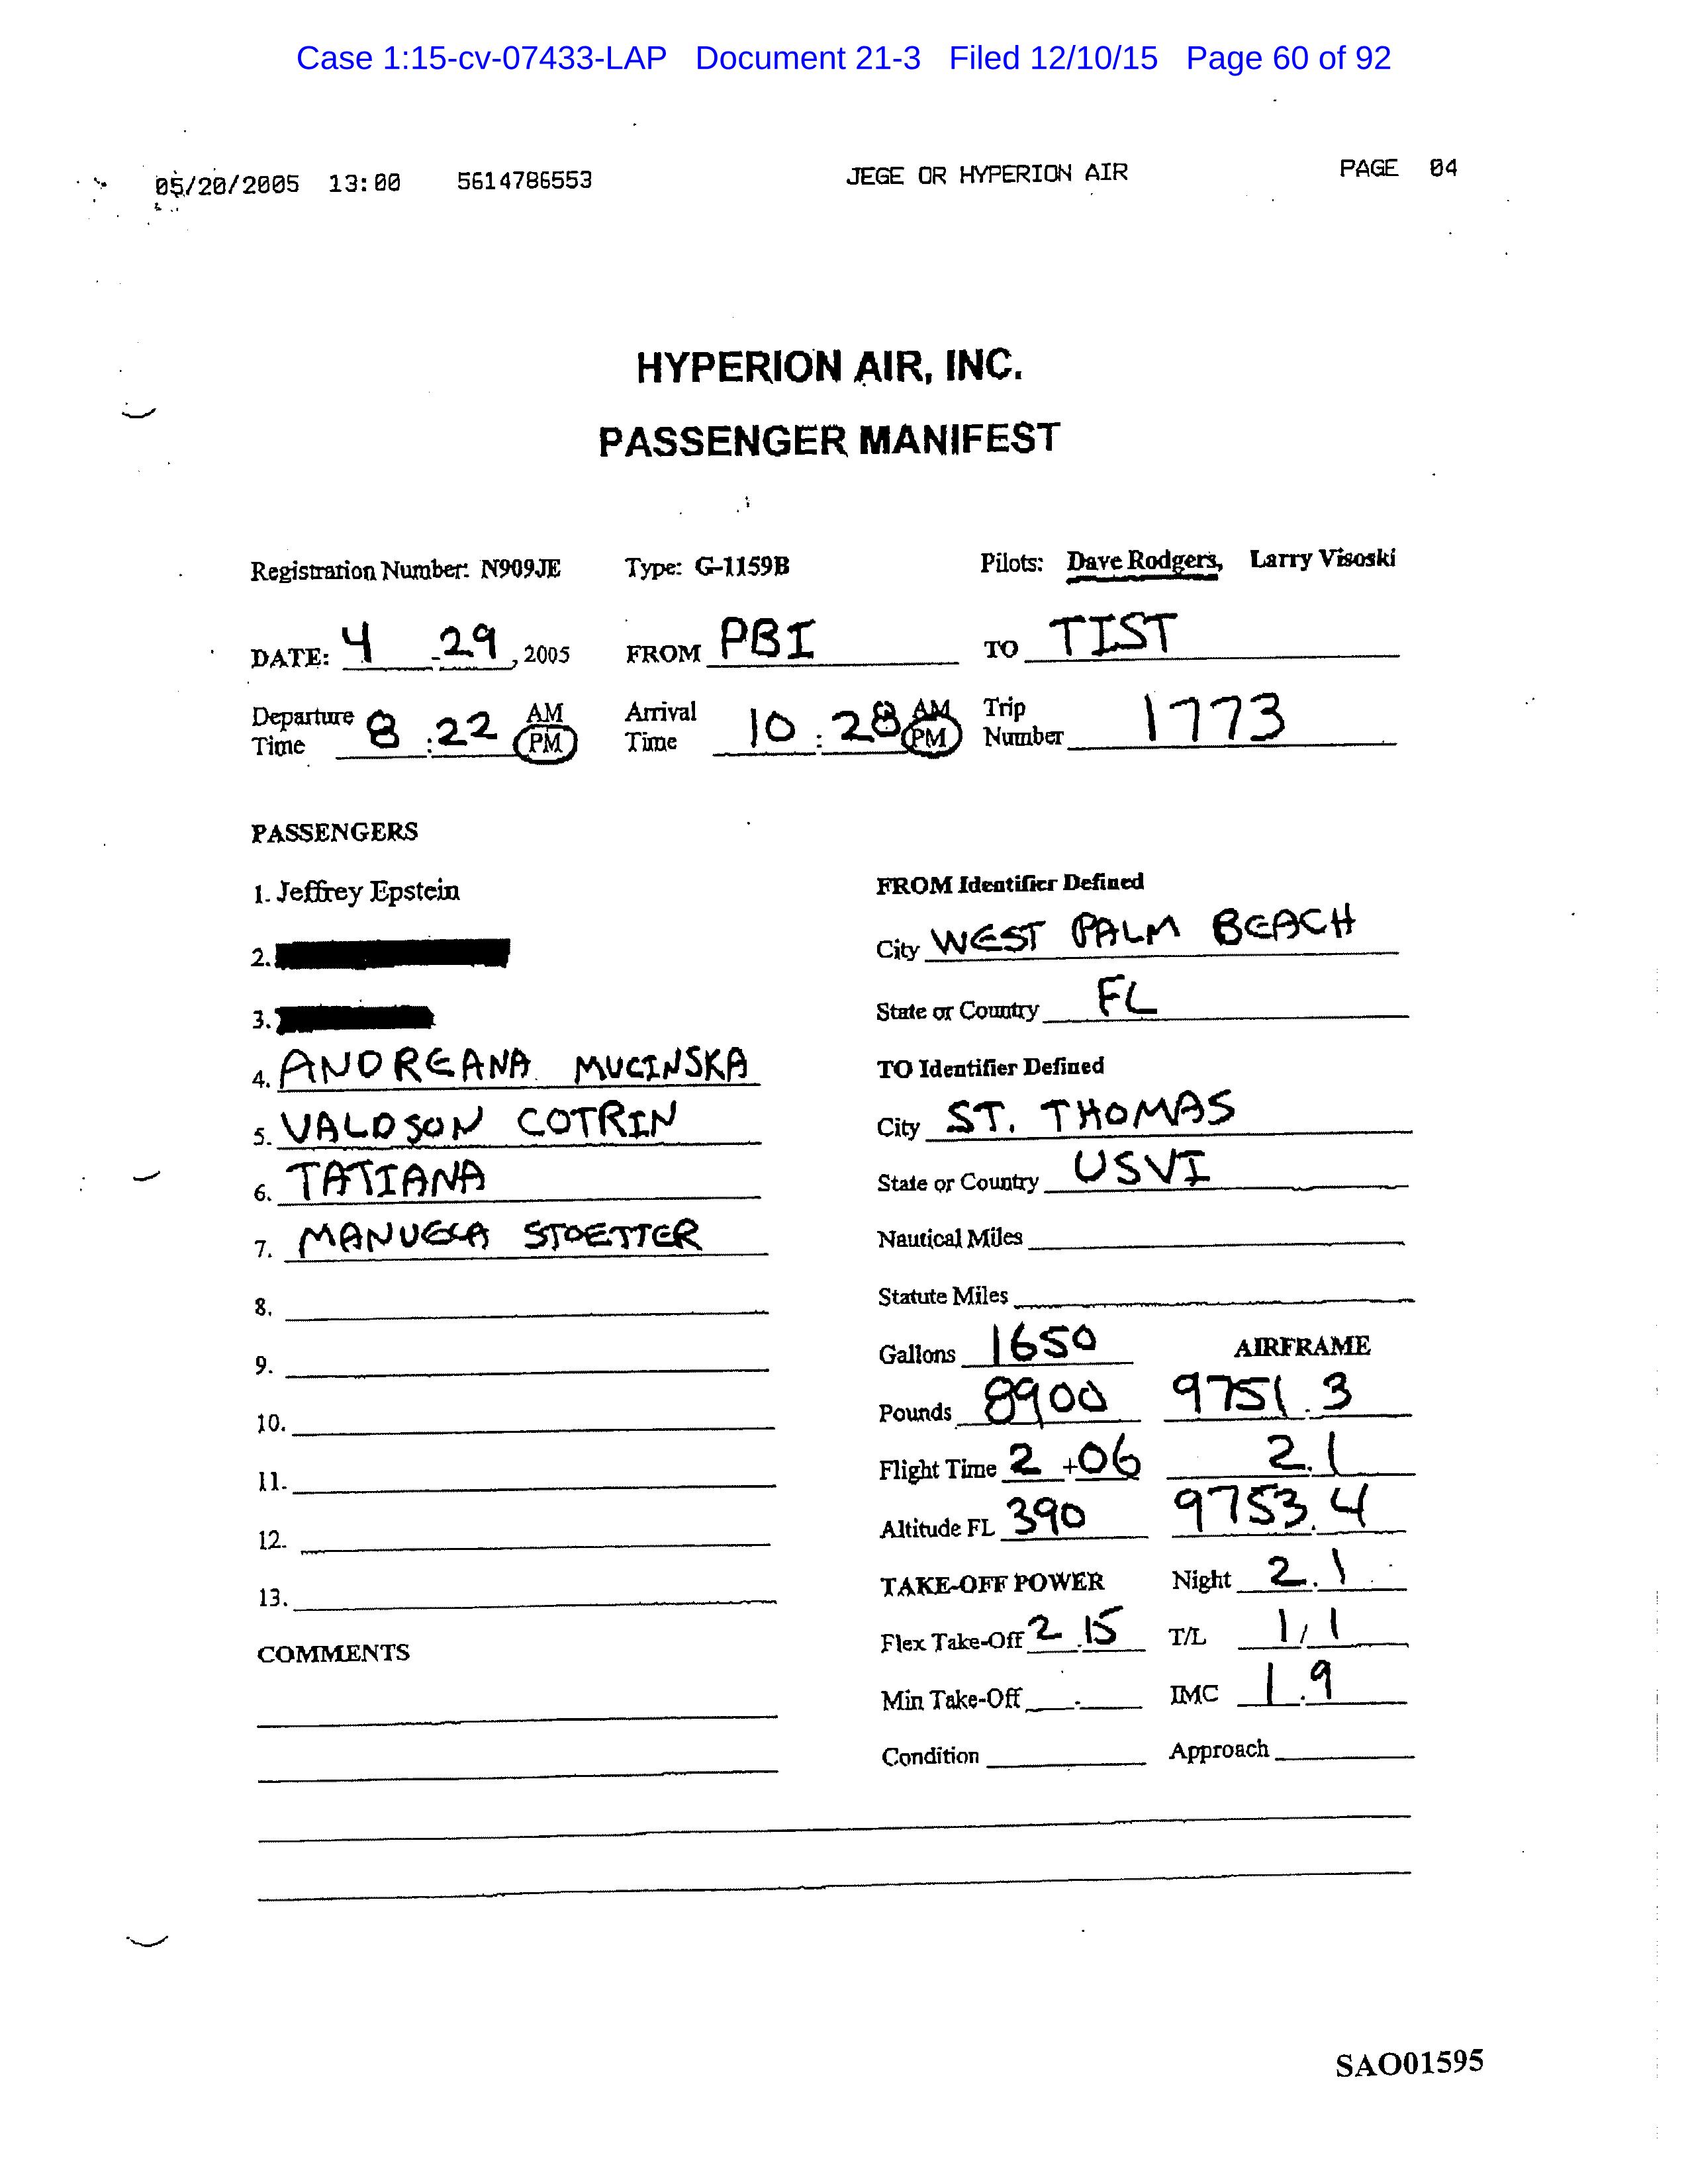 Case 1:15-cv-07433-LAP Document 21-3 Filed 12/10/15 Page 60 of 92
05/20/2005 13:00 5614786553 JEGE OR HYPERION AIR PAGE 04
HYPERION AIR, INC.
PASSENGER MANIFEST
Registration Number: N909JE Type: G-1159B Pilots: Dave Rodgers, Larry Visoski
DATE: 4 - 29, 2005 FROM PBI TO TIST
Departure Time 8:22 AM PM Arrival Time 10:28 AM PM Trip Number 1773
PASSENGERS
1. Jeffrey Epstein
2.
3.
4. ANDREANA MUCINSKA
5. VALDSON COTRIN
6. TATIANA
7. MANUELA STOETTER
8.
9.
10.
11.
12.
13.
COMMENTS
FROM Identifier Defined
City WEST PALM BEACH
State or Country FL
TO Identifier Defined
City ST. THOMAS
State or Country USVI
Nautical Miles
Statute Miles
Gallons 1650 AIRFRAME
Pounds 8900 9751.3
Flight Time 2+06 2.1
Altitude FL 390 9753.4
TAKE-OFF POWER Night 2.1
Flex Take-Off 2.15 T/L 1/1
Min Take-Off . IMC 1.9
Condition Approach
SAO01595